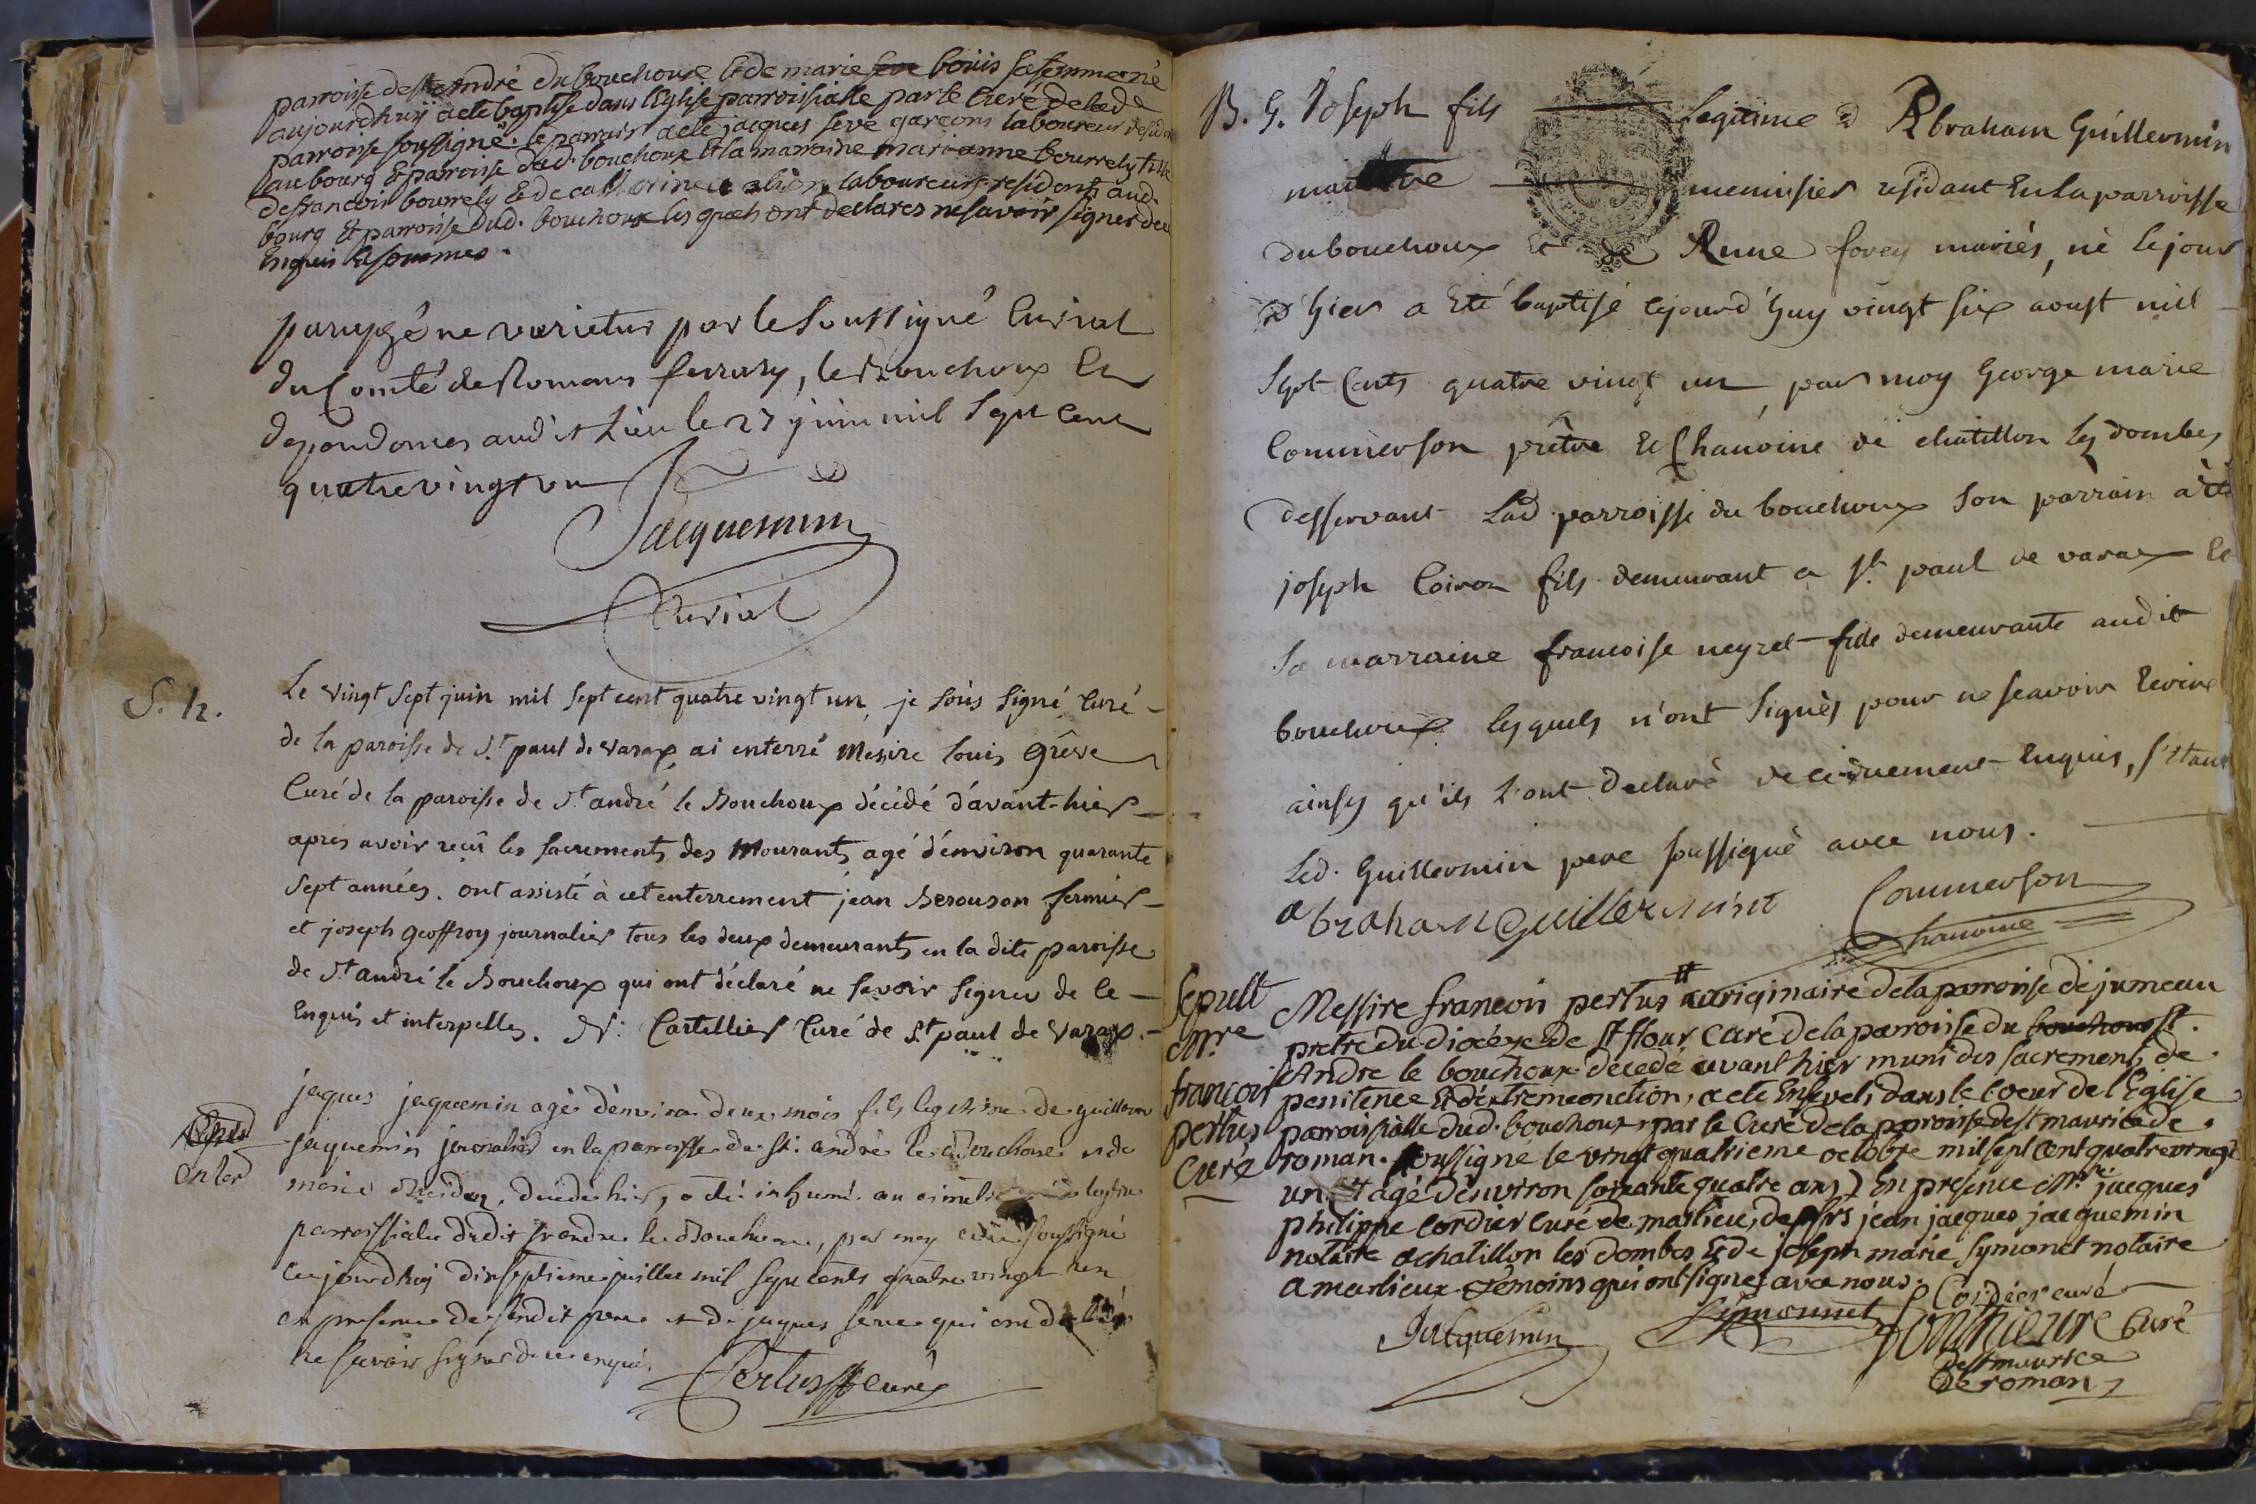 parroisse de st André du bouchoux & de marie seve boüis sa femme né
aujourdhuÿ a eté baptisé dans l'Eglise parroissialle par le Curé de lad.
parroisse soussigné. le parrain a eté jacques seve garcons laboureur
au bourg & parroise dud. bouchoux & la marraine marianne bourrely fille
de francois bourrely & de catherine laboureurs residents aud.
bourg et parroise dud. bouchoux les quels ont declarés ne savoir signer de ce
Enquis & sommes.
parapzé ne varietur par le soussigné Curial
du Comté de Romans ferrary, le Bouchoux et
dependances audit Lieu le 27 juin mil sept cent
quatre vingt un
Jacquemin
Curial
S. h.
Le vingt sept juin mil sept cent quatre vingt un, je soûs signé, Curé
de la paroisse de St paul de varax, ai enterré Messire louis Grêve
Curé de la paroisse de St andré le Bouchoux décédé d'avant-hier
après avoir reçû les sacrements des Mourants, agé d'environ quarante
sept années. ont assisté à cet enterrement jéan Berouson fermier
et joseph geoffroy journalier tous les deux demeurants en la dite paroisse
de St andré le Bouchoux qui ont déclaré ne savoir signer de ce
Enquis et interpellés. N: Cartellier Curé de St paul de Varax.
enter
jaques jaquemin agé d'environ deux mois fils legitime de guillerm
jaquemin journalier en la parroisse de st. andré le Bouchoux et de
marie, decedé hier, a eté inhumé au cimetiere de leglise
parroissiale dudit st andré le Bouchoux, par moy curé soussigné
ce jourdhuy dixseptieme juillet mil sept cents quatre vingt un
en presence de sondit pere et de jaques seve qui ont declaré
ne savoir signer de ce enquis
Pertus curé
B. G. Joseph fils legitime d'Abraham Guillermin
maitre menuisier residant en la parroisse
du bouchoux et de Anne forey mariés, né le jour
d'hier a eté baptisé cejourd'huy vingt six aoust mil
sept cents quatre vingt un par moy George marie
Commerson prêtre et Chanoine de chatillon les dombes
desservant lad. parroisse du bouchoux son parrain a eté
joseph Coiron fils demeurant a st. paul de varax et
sa marraine francoise neyret fille demeurante audit
bouchoux lesquels n'ont signés pour ne scavoir Ecrire
ainsy qu'ils l'ont declaré de ce dûement Enquis, s'etant
led. Guillermin pere soussigné avec nous.
abraham Guillermint Commerson
chanoine
Sepult
Mre
francois
pertus
Curé
Messire francois pertus originaire de la parroise de jumeau
pretre du diocéze de st flour Curé de la parroise du bouchoux st.
Andre le bouchoux decedé avant hier muni des sacrements de
penitence & d'extremeonction, a eté Enseveli dans le coeur de l'Eglise
parroissialle dud. bouchoux par le Curé de la parroisse de st maurice de
roman. soussigné le vingt quatrieme octobre mil sept cent quatre vingt
un (& agé d'environ soixante quatre ans) En presence Mre jacques
philippe Cordier Curé de marlieu, de srs jean jacques jacquemin
notaire a chatillon les dombes & de joseph marie symonet notaire
a marlieux témoins qui ont signés avec nous.
Cordier curé
Jacquemin Symonnet Curé
de st maurice
de roman